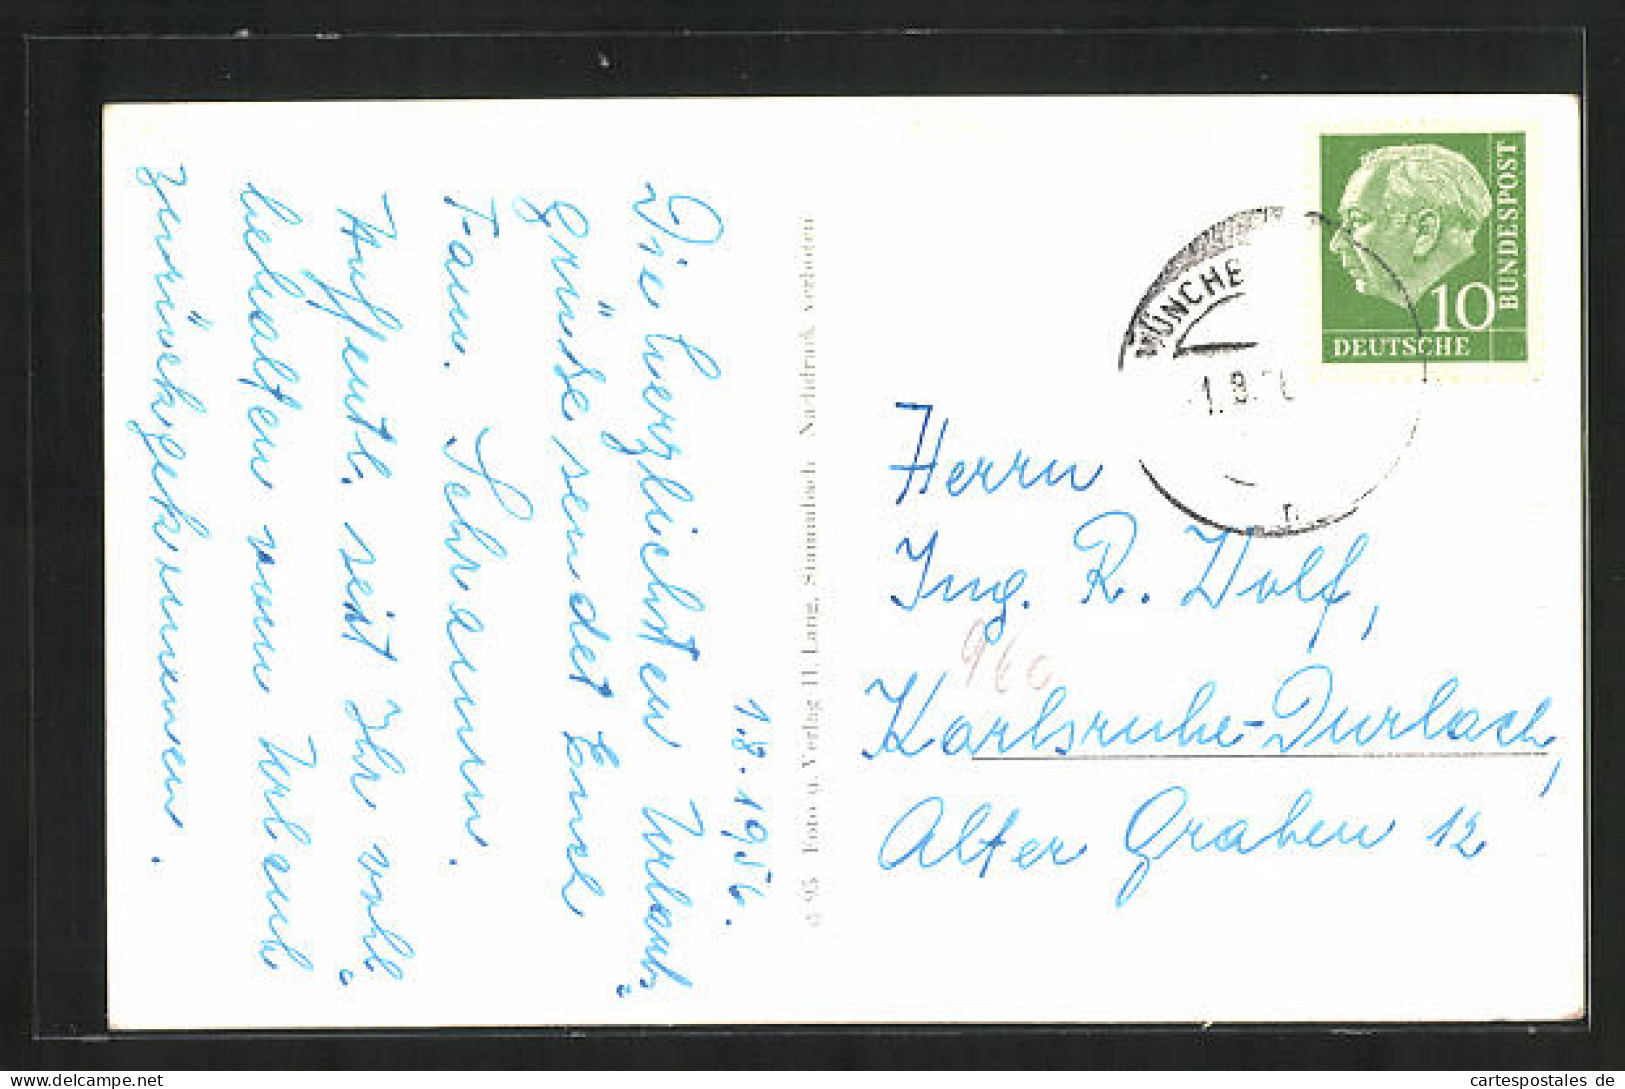 1.8.1956.
Die herzlichsten Urlaub-
grüsse sendet Euch
Fam. Schramm.
Hoffentl. seit Ihr wohl-
behalten vom Urlaub
zurückgekommen.
Foto u. Verlag H. Lang, Simmbach Nachdruck verboten
MÜNCHE
1.8.
DEUTSCHE
BUNDESPOST
10
Herrn
Ing. R. Dolf,
960
Karlsruhe-Durlach,
Alter Graben 12
cartespostales de